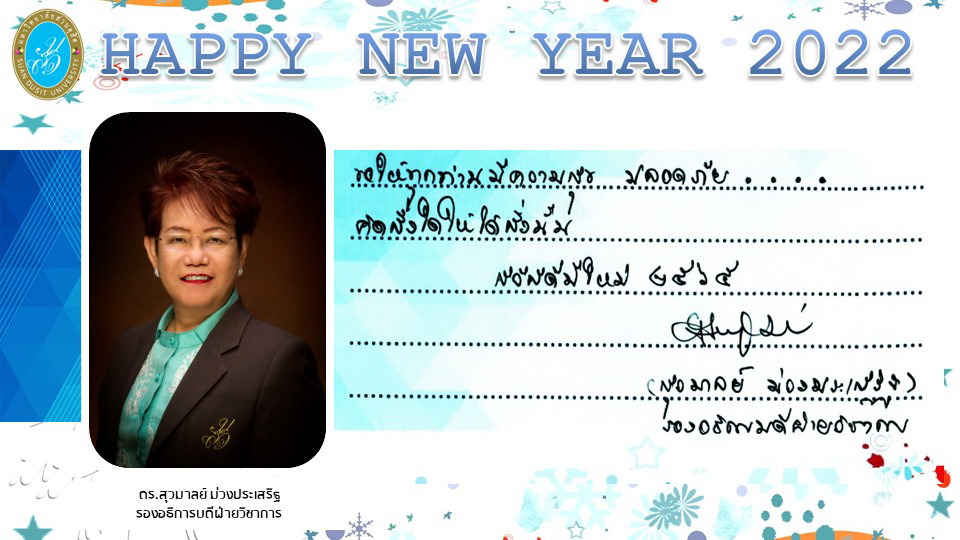 มหาวิทยาลัยสวนดุสิต
SUAN DUSIT UNIVERSITY
HAPPY NEW YEAR 2022
ขอให้ทุกท่านมีความสุข ปลอดภัย . . . .
คิดสิ่งใดให้ได้สิ่งนั้น
สวัสดีปีใหม่ ๒๕๖๕
(สุวมาลย์ ม่วงประเสริฐ)
รองอธิการบดีฝ่ายวิชาการ
ดร.สุวมาลย์ ม่วงประเสริฐ
รองอธิการบดีฝ่ายวิชาการ